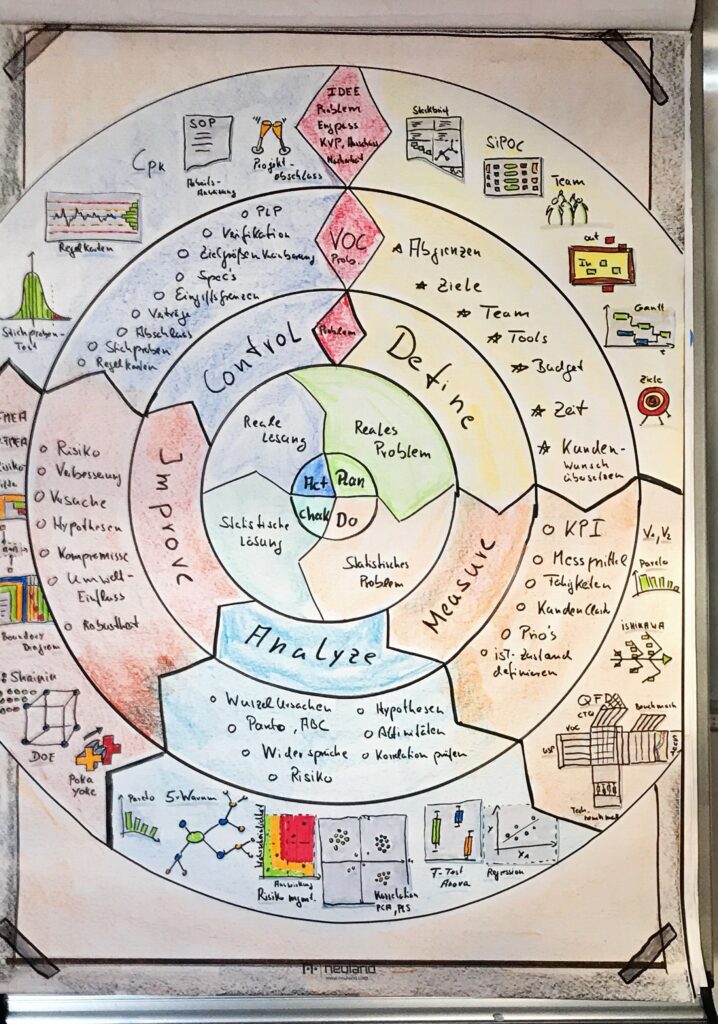 IDEE
Problem
Engpass
VOC
Prob.
Problem
Steckbrief
SiPOC
Team
out
In
Gantt
Ziele
Define
Abgrenzen
Ziele
Team
Tools
Budget
Zeit
Kunden-
wunsch
übersetzen
Measure
KPI
Messmittel
Fähigkeiten
Prio's
iST-Zustand
definieren
Pareto
iSHIKAWA
QFD
CTQ
Benchmark
VOC
USP
Tech.
Analyze
Wurzel Ursachen
Pareto, ABC
Widersprüche
Risiko
Hypothesen
Korrelation prüfen
Pareto
5-Warum
Auswirkung
Risiko mgmt.
Korrelation
PCA, PLS
T-Test
Anova
Regression
Y
Improve
Risiko
Verbesserung
Ursache
Hypothesen
Kompromisse
Umwelt-
Einfluss
Robustheit
Boundary
Diagram
Shainin
DOE
Poka
yoke
Control
PLP
Verifikation
Spec's
Eingriffsgrenzen
Verträge
Abschluss
Stichproben
Regelkarten
Cpk
SOP
Arbeits-
Anweisung
Projekt-
abschluss
Regelkarten
Stichproben-
Test
Reale
Lösung
Reales
Problem
Statistische
Lösung
Statistisches
Problem
Act
Plan
Check
Do
neuland